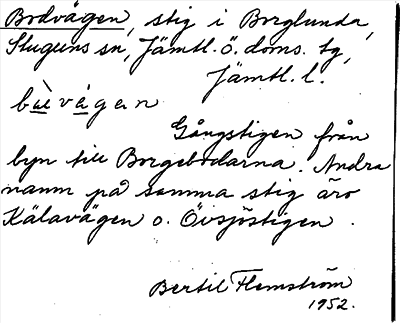 Bodvägen, stig i Borglunda,
Stuguns sn, Jämtl. ö. doms. tg,
Jämtl. l.
gen
Gångstigen från
byn till Borgebodarna. Andra
namn på samma stig äro
Kälavägen o. Övsjöstigen.
Bertil Flemström
1952.